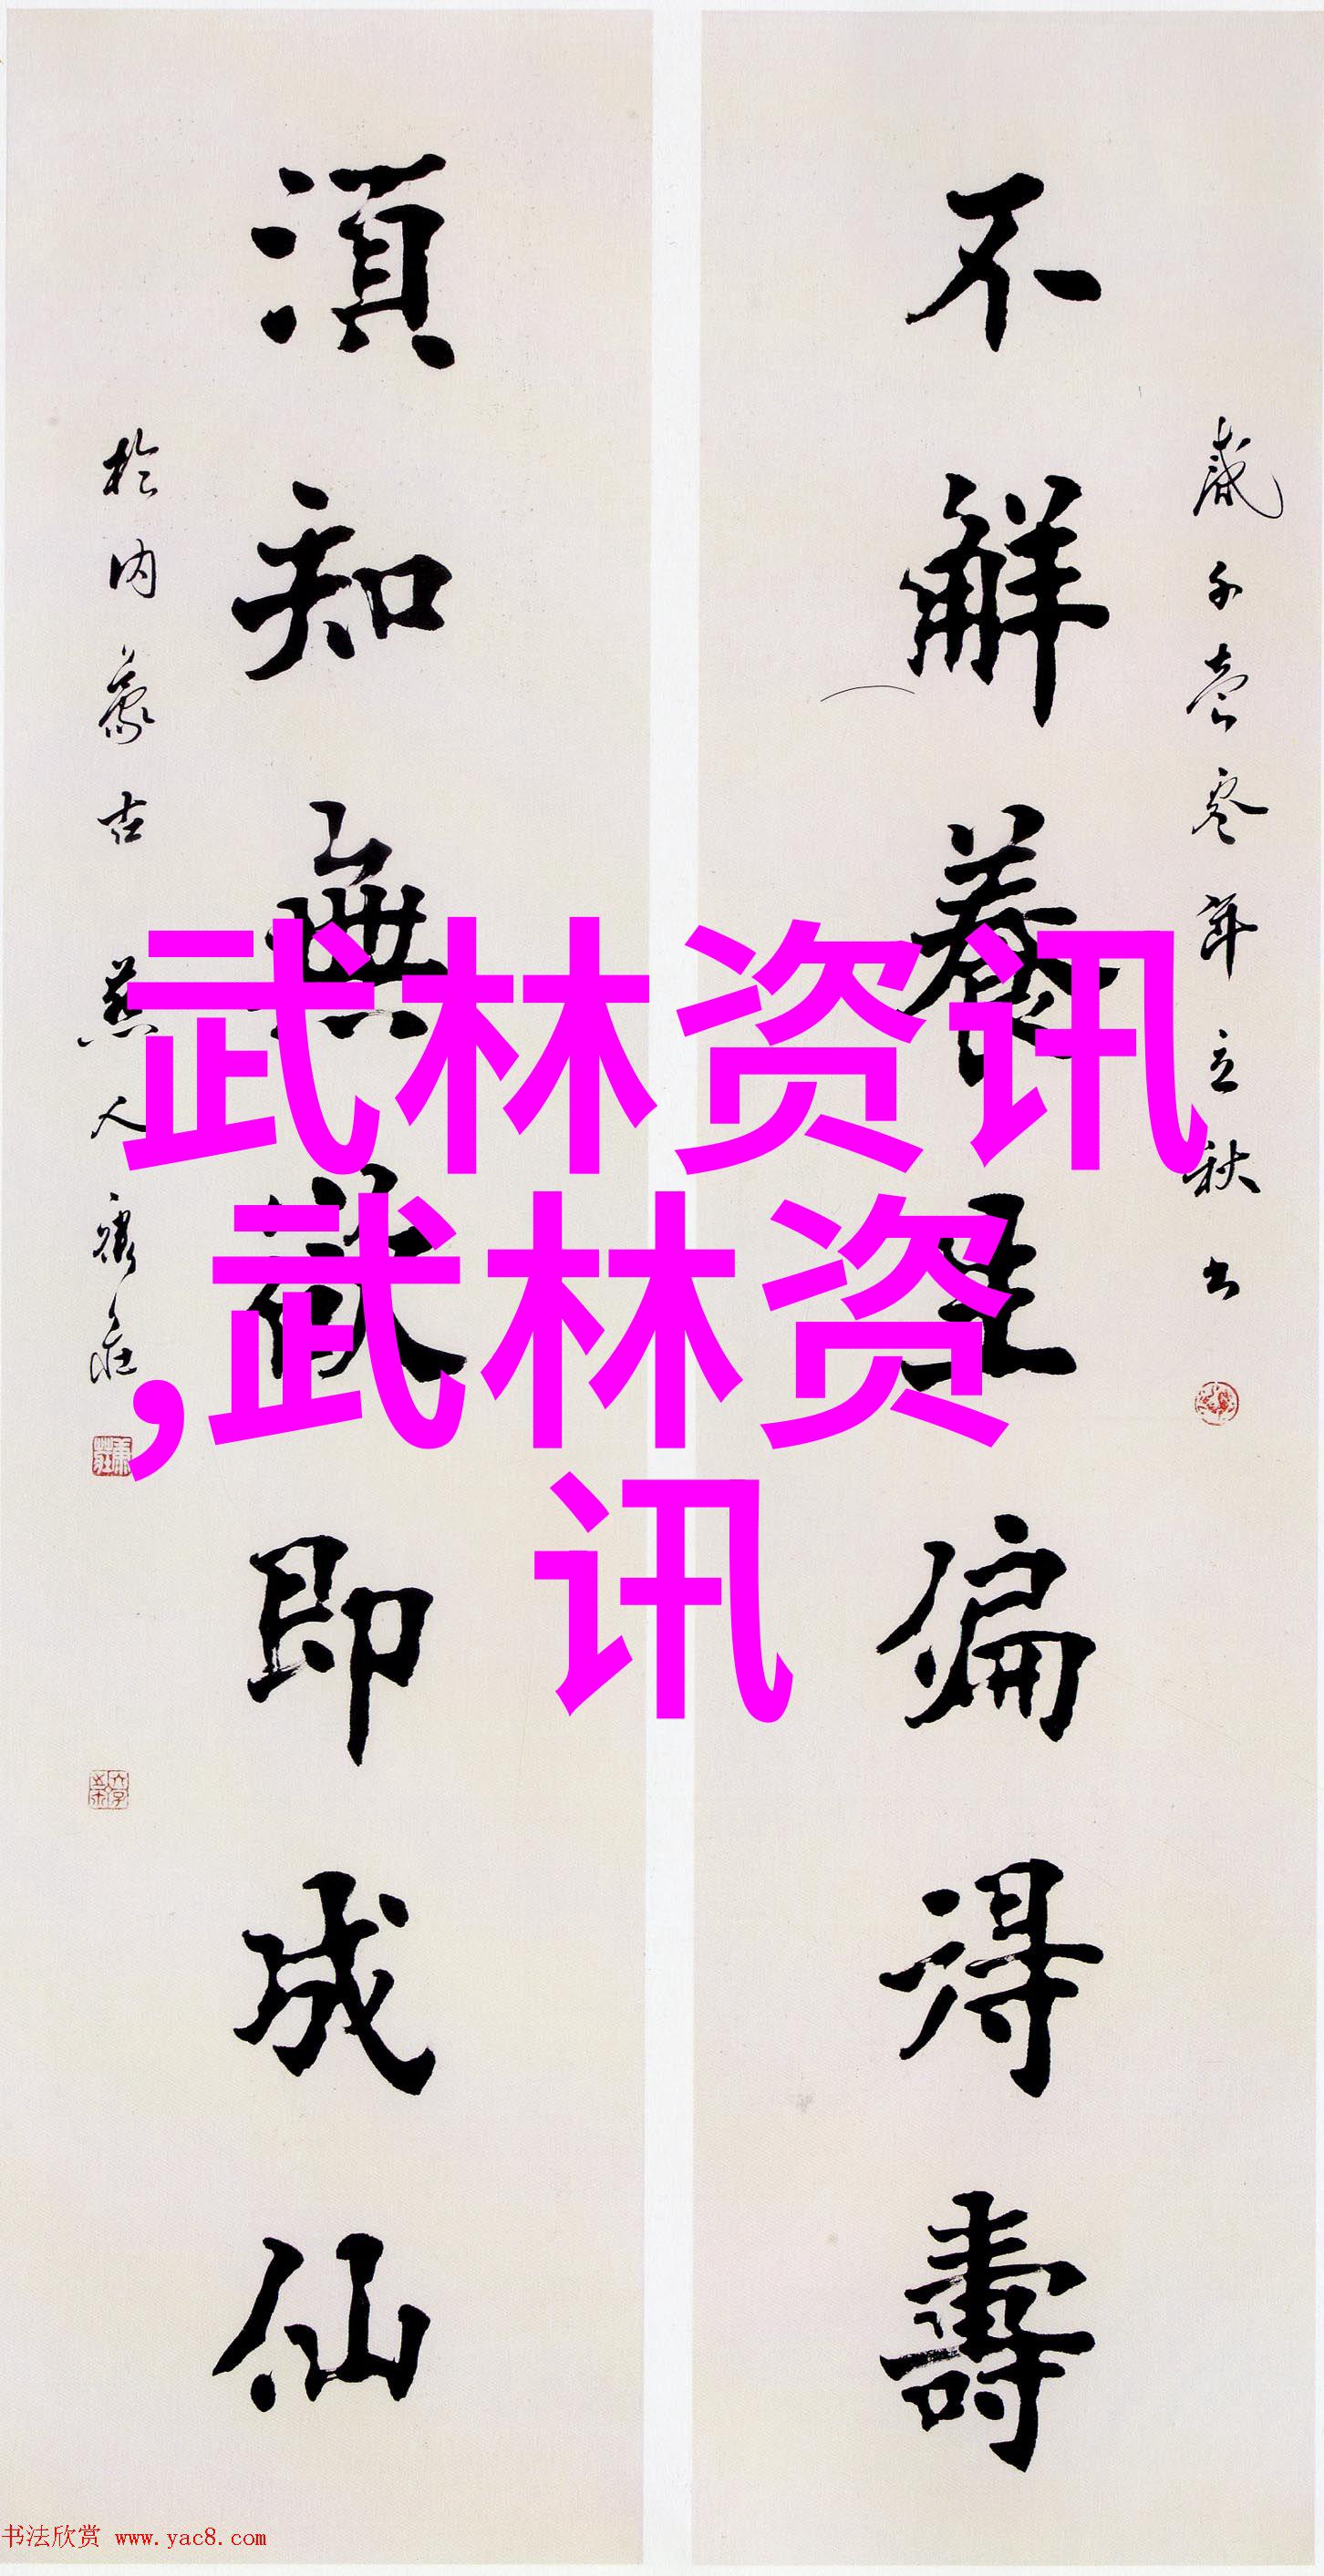 歲于壹零年立秋書
不解養生偏得壽
須知無即成仙
於内蒙古燕人
武林资讯
,武林资
讯
书法欣赏 www.yac8.com